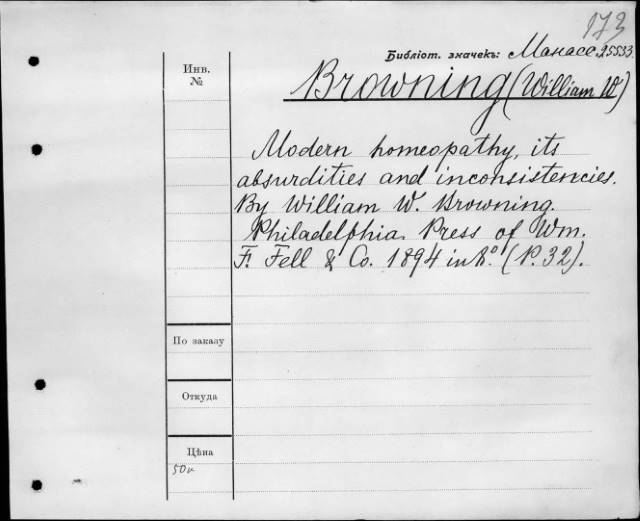 173
Библіот. значекъ: Манасс. 25533.
Инв.
№
Browning (William W)
Modern homeopathy, its
absurdities and inconsistencies.
By William W. Browning.
Philadelphia. Press of Wm.
F. Fell & Co. 1894 in 8º. (P. 32).
По заказу
Откуда
Цѣна
50к